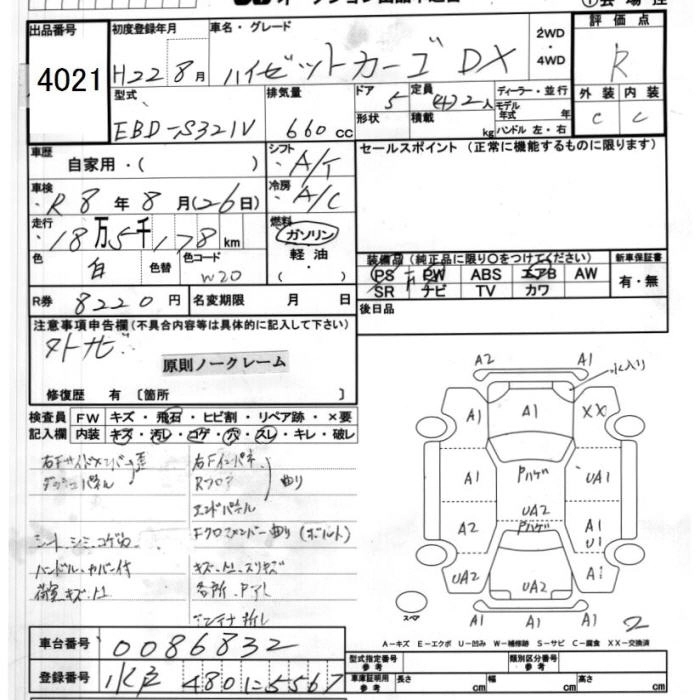 出品番号
4021
初度登録年月
H22 8月
車名・グレード
ハイゼットカーゴ DX
2WD
・
4WD
評価点
R
外装 内装
C C
型式
EBD-S321V
排気量
660cc
ドア 5
形状
定員 (4)2人
積載 kg
ディーラー・並行
モデル年式 年
ハンドル 左・右
車歴
自家用・( )
シフト
A/T
車検
R8年8月(26日)
冷房
A/C
走行
18万5千178km
燃料
ガソリン
軽油
・( )
色 白 色替
色コード W20
R券 8220円
名変期限 月 日
セールスポイント (正常に機能するものに限ります)
装備品 (純正品に限り〇をつけてください)
PS PW ABS エアB AW
SR ナビ TV カワ
新車保証書
有・無
後日品
注意事項申告欄(不具合内容等は具体的に記入して下さい)
外サビ
原則ノークレーム
修復歴 有 〔箇所 〕
検査員 FW キズ・飛石・ヒビ割・リペア跡・×要
記入欄 内装 キズ・汚レ・コゲ・穴・スレ・キレ・破レ
右Fサイドメンバー歪
ダッシュパネル
右Fインパネ
Rフロア
エンドパネル
曲り
Fクロスメンバー曲り(ボルト)
シート シミ コゲ穴
ハンドル カバー付
荷室キズ・凹
キズ・凹・スリキズ
各所、Pアレ
アンテナ折レ
A2 A1 水入り
A1 A1 XX
A1 Pハゲ UA1
UA2
A2 Pハゲ A1
U1
UA2 UA2 A1
A1 A1
スペア
2
A-キズ E-エクボ U-凹み W-補修跡 S-サビ C-腐食 XX-交換済
車台番号 0086832
登録番号 水戸 480 に 5567
型式指定番号 参考
類別区分番号 参考
車庫証明用 参考 長さ cm 幅 cm 高さ cm